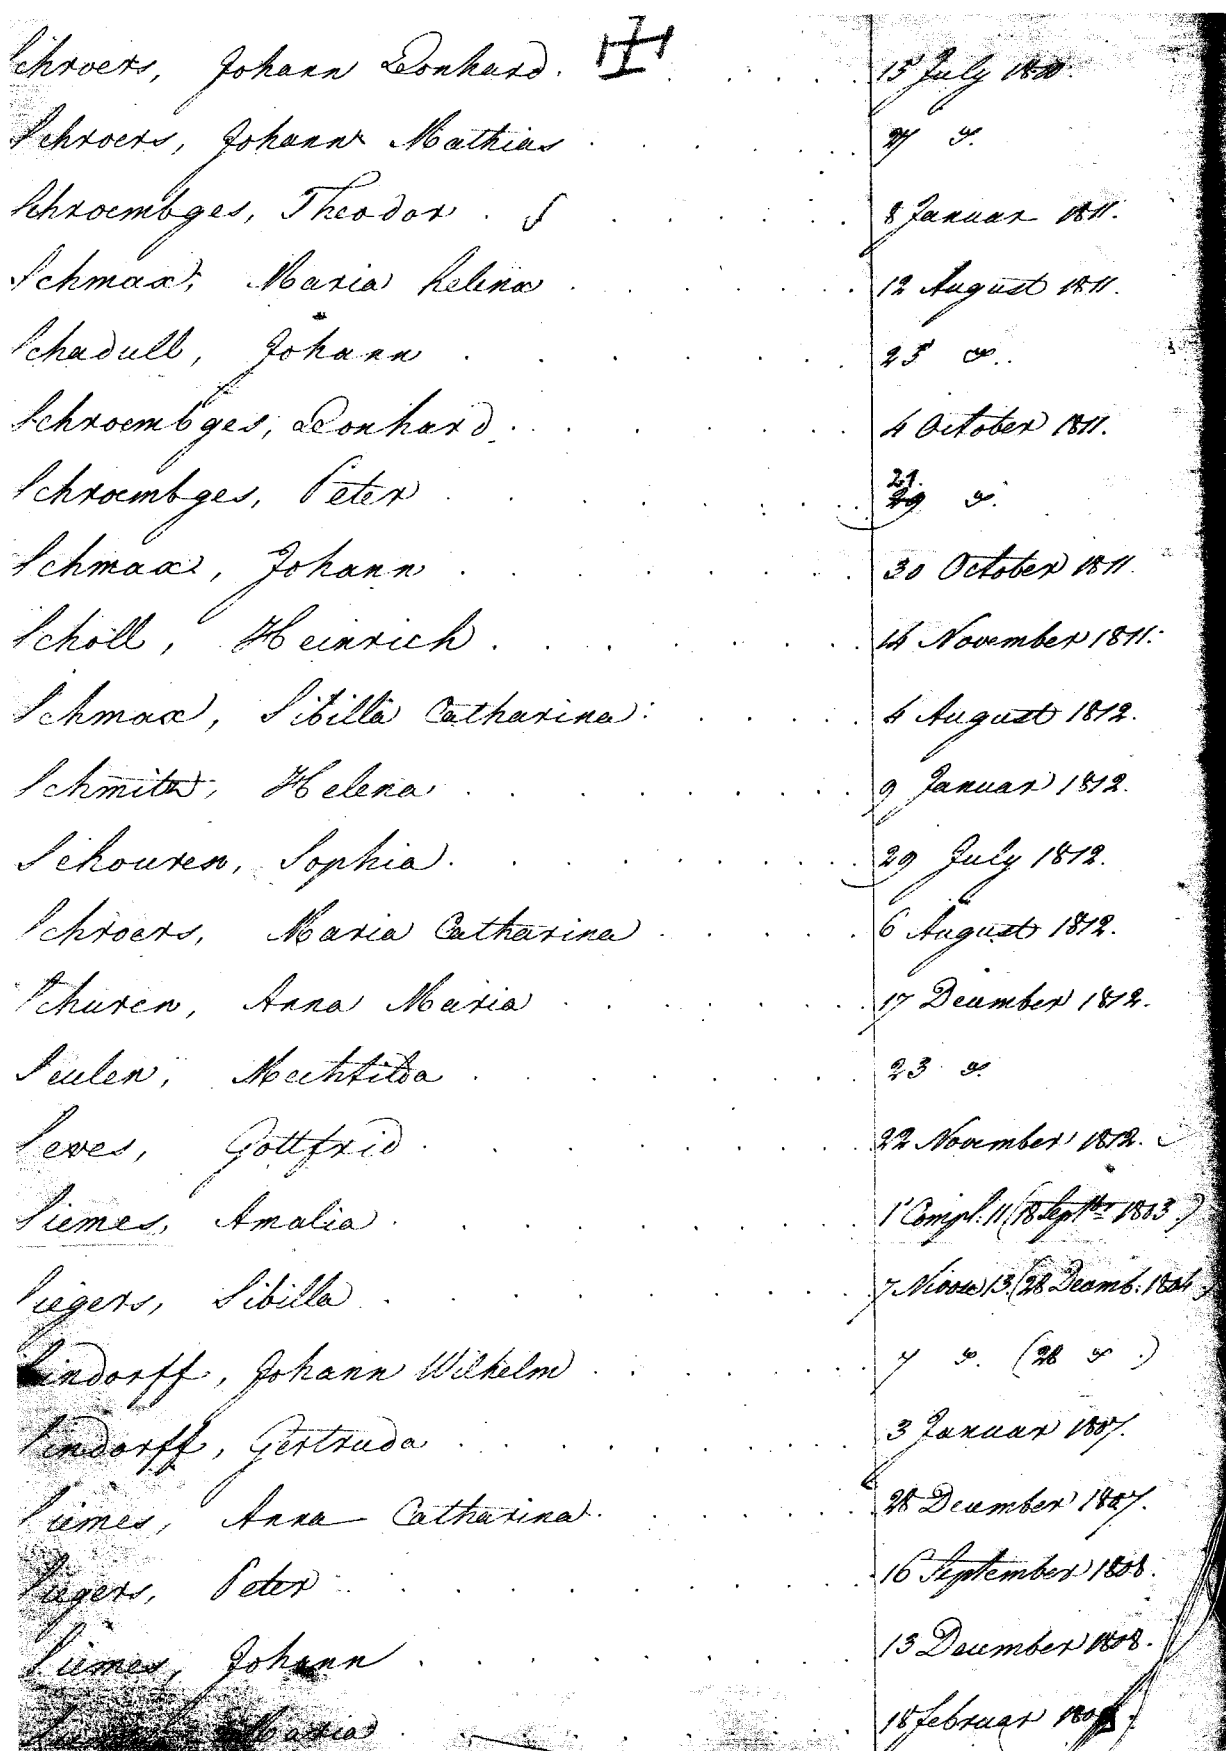 Schroers, Johann Leonhard. 15 July 1810.
Schroers, Johann Mathias 27 d°.
Schroembges, Theodor. 8 Januar 1811.
Schmax, Maria helena 12 August 1811.
Schadull, Johann 25 d°.
Schroembges, Leonhard 4 October 1811.
Schroembges, Peter 21. d°.
Schmax, Johann 30 October 1811.
Scholl, Heinrich 14 November 1811.
Schmax, Sibilla Catharina 4 August 1812.
Schmitz, Helena 9 Januar 1812.
Schouren, Sophia. 29 July 1812.
Schroers, Maria Catharina 6 August 1812.
Schuren, Anna Maria 17 December 1812.
Seulen, Mechtilda 23 d°.
Seves, Gottfrid 22 November 1812.
Siemes, Amalia 1r Compl. 11 (18 Septbr 1803.)
Siegers, Sibilla 7 Nivose 13 (28 Decemb. 1804.)
Sindorff, Johann Wilhelm 7 d°. (28 d°.)
Sindorff, Gertruda 3 Januar 1807.
Siemes, Anna Catharina 28 December 1807.
Siegers, Peter 16 September 1808.
Siemes, Johann 13 December 1808.
Maria 18 februar